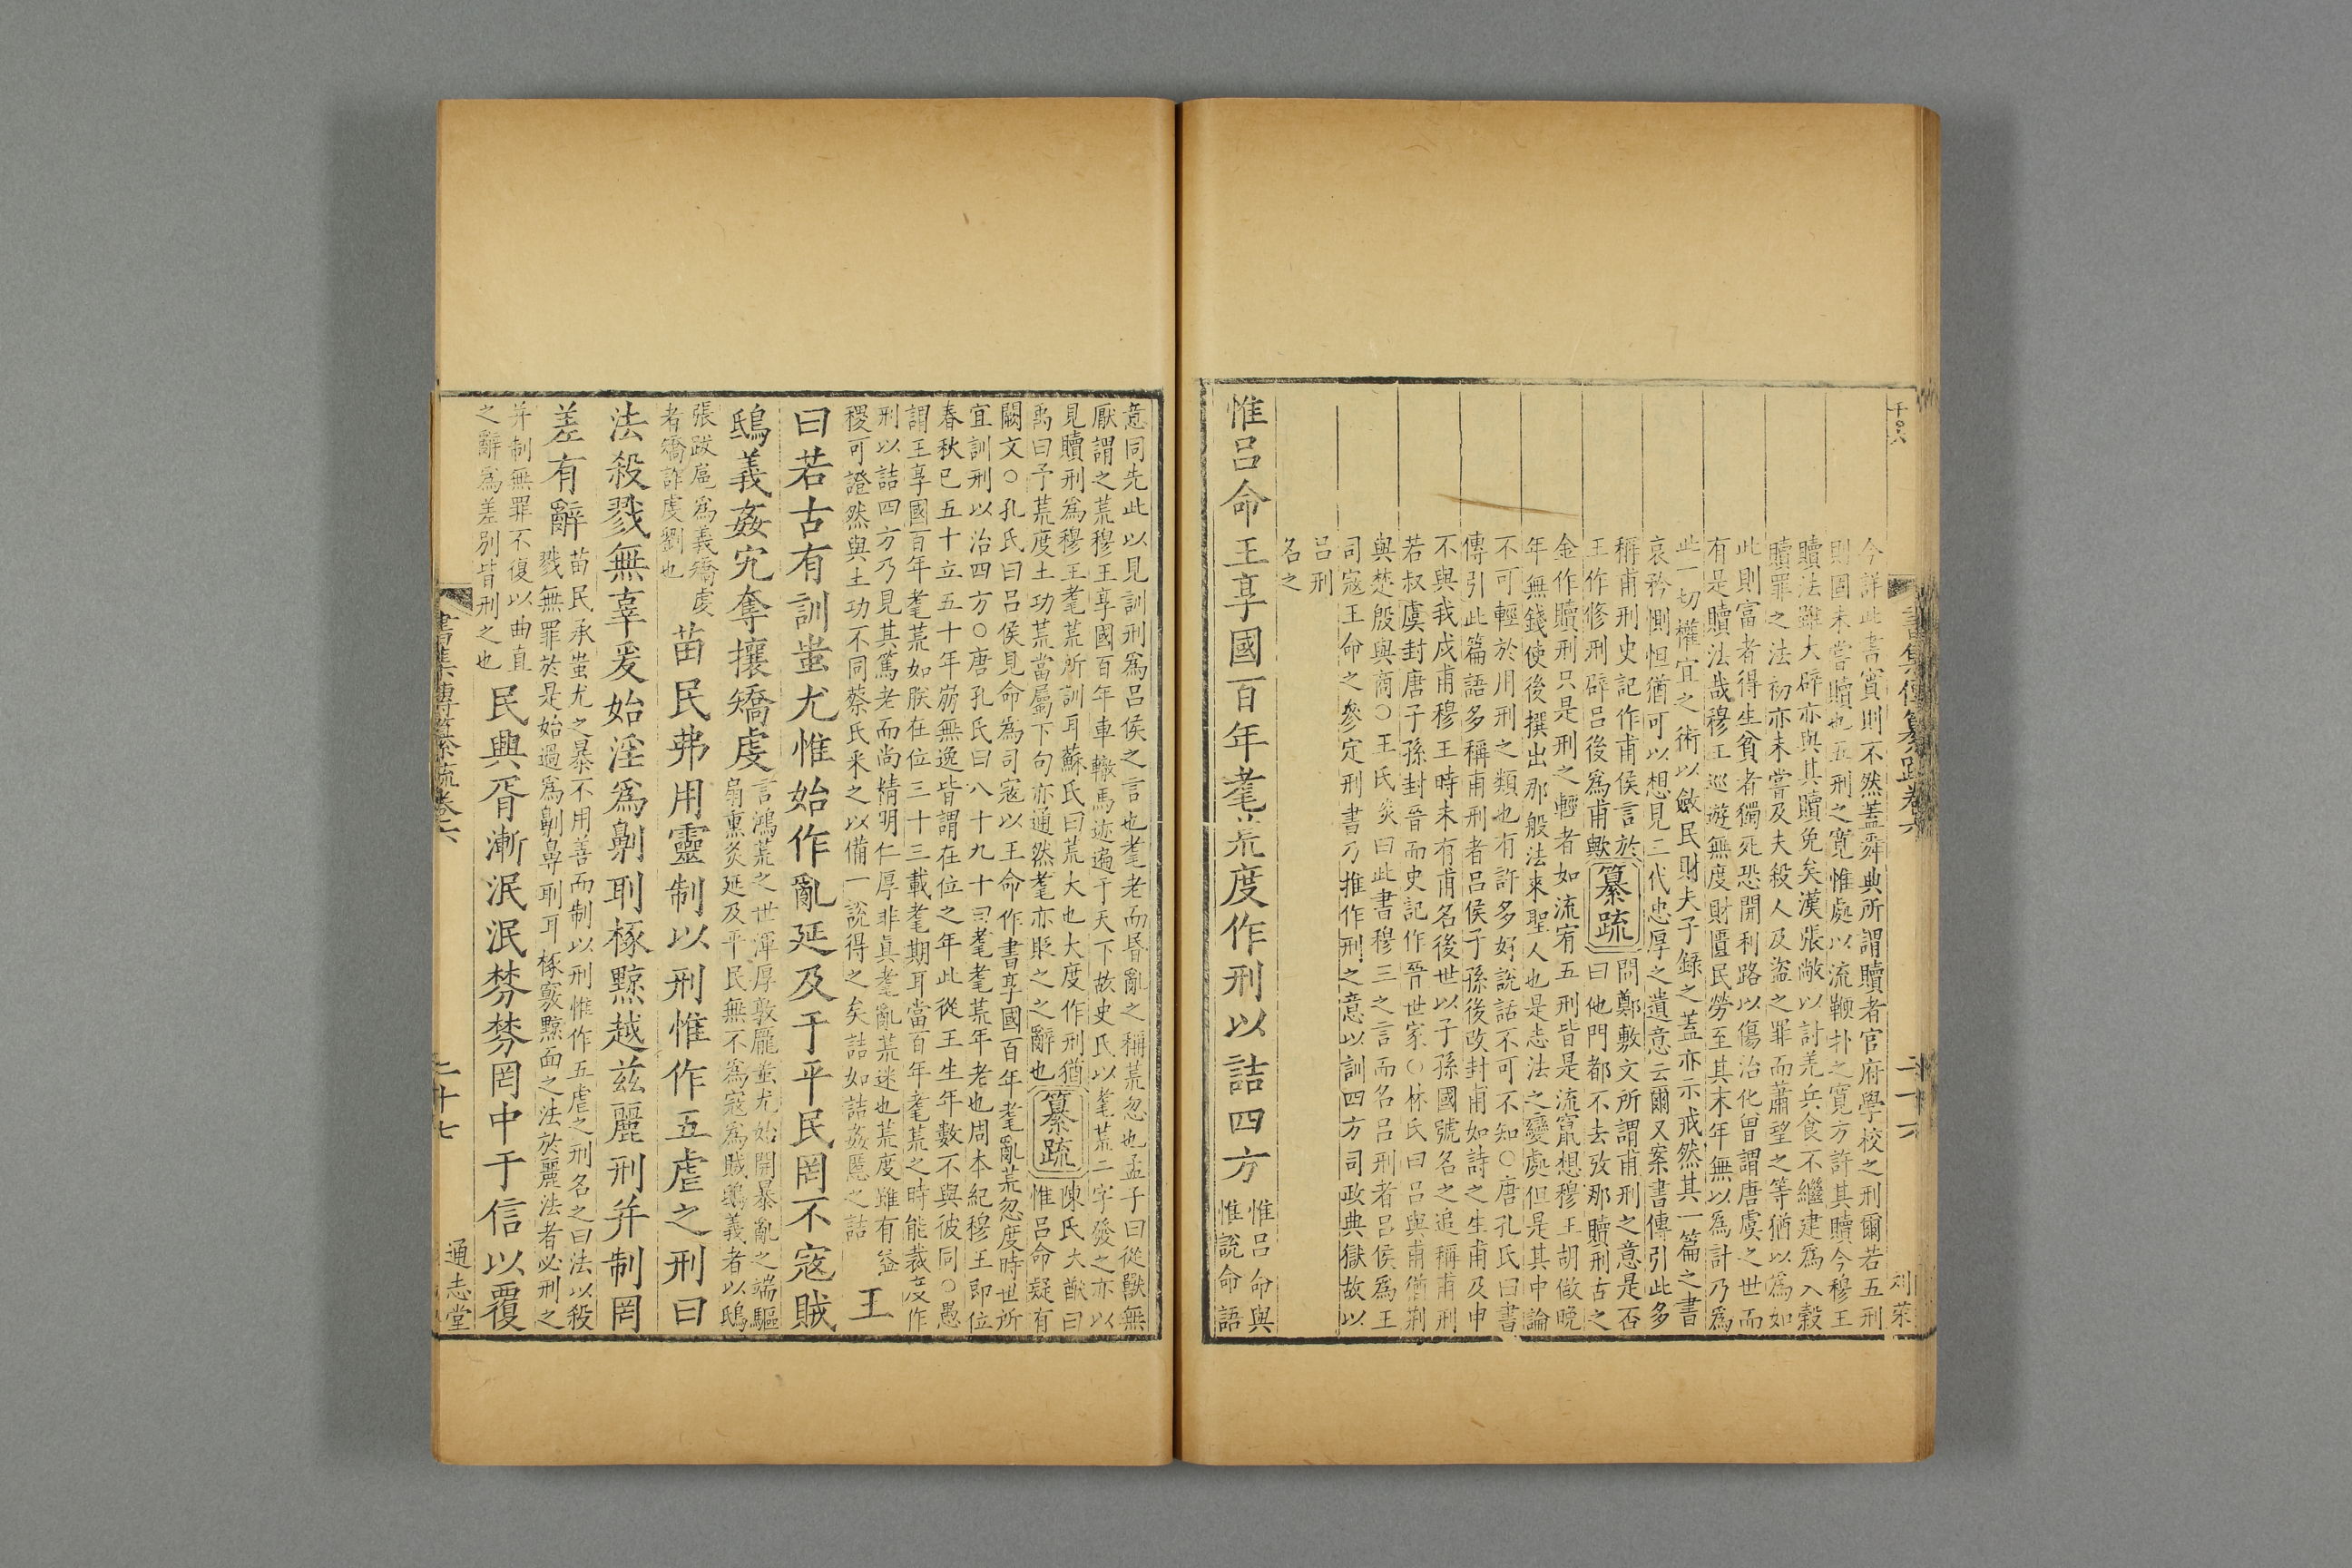 今詳此書實則不然蓋舜典所謂贖者官府學校之刑爾若五刑
則固未嘗贖也五刑之寬惟處以流鞭扑之寬方許其贖今穆王
贖法雖大辟亦與其贖免矣漢張敞以討羌兵食不繼建爲入穀
贖罪之法初亦未嘗及夫殺人及盜之罪而蕭望之等猶以爲如
此則富者得生貧者獨死恐開利路以傷治化曾謂唐虞之世而
有是贖法哉穆王巡遊無度財匱民勞至其末年無以爲計乃爲
此一切權宜之術以斂民財夫子錄之蓋亦示戒然其一篇之書
哀矜惻怛猶可以想見三代忠厚之遺意云爾又案書傳引此多
稱甫刑史記作甫侯言於
王作修刑辟呂後爲甫歟
纂疏
問鄭敷文所謂甫刑之意是否
曰他門都不去攷那贖刑古之
金作贖刑只是刑之輕者如流宥五刑皆是流竄想穆王胡做晚
年無錢使後撰出那般法來聖人也是志法之變處但是其中論
不可輕於用刑之類也有許多好說話不可不知○唐孔氏曰書
傳引此篇語多稱甫刑者呂侯子孫後改封甫如詩之生甫及申
不與我戍甫穆王時未有甫名後世以子孫國號名之追稱甫刑
若叔虞封唐子孫封晉而史記作晉世家○林氏曰呂與甫猶荆
與楚殷與商○王氏炎曰此書穆王之言而名呂刑者呂侯爲王
司寇王命之參定刑書乃推作刑之意以訓四方司政典獄故以
呂刑
名之
惟呂命王享國百年耄荒度作刑以詰四方
惟呂命與
惟說命語
書集傳纂疏卷六
二十六
意同先此以見訓刑爲呂侯之言也耄老而昬亂之稱荒忽也孟子曰從獸無
厭謂之荒穆王享國百年車轍馬迹遍于天下故史氏以耄荒二字發之亦以
見贖刑爲穆王耄荒所訓耳蘇氏曰荒大也大度作刑猶
禹曰予荒度土功荒當屬下句亦通然耄亦貶之之辭也
纂疏
陳氏大猷曰
惟呂命疑有
闕文○孔氏曰呂侯見命爲司寇以王命作書享國百年耄亂荒忽度時世所
宜訓刑以治四方○唐孔氏曰八十九十曰耄耄荒年老也周本紀穆王即位
春秋已五十立五十年崩無逸皆謂在位之年此從王生年數不與彼同○愚
謂王享國百年耄荒如朕在位三十三載耄期耳當百年耄荒之時能裁度作
刑以詰四方乃見其篤老而尚精明仁厚非眞耄亂荒迷也荒度雖有益
稷可證然與土功不同蔡氏釆之以備一說得之矣詰如詰姦慝之詰
王
曰若古有訓蚩尤惟始作亂延及于平民罔不寇賊
鴟義姦宄奪攘矯虔
言鴻荒之世渾厚敦厖蚩尤始開暴亂之端驅
扇熏炙延及平民無不爲寇爲賊鴟義者以鴟
張跋扈爲義矯虔
者矯詐虔劉也
苗民弗用靈制以刑惟作五虐之刑曰
法殺戮無辜爰始淫爲劓刵椓黥越兹麗刑并制罔
差有辭
苗民承蚩尤之暴不用善而制以刑惟作五虐之刑名之曰法以殺
戮無罪於是始過爲劓鼻刵耳椓竅黥面之法於麗法者必刑之
并制無罪不復以曲直
之辭爲差別皆刑之也
民興胥漸泯泯棼棼罔中于信以覆
書集傳纂疏卷六
二十七
通志堂